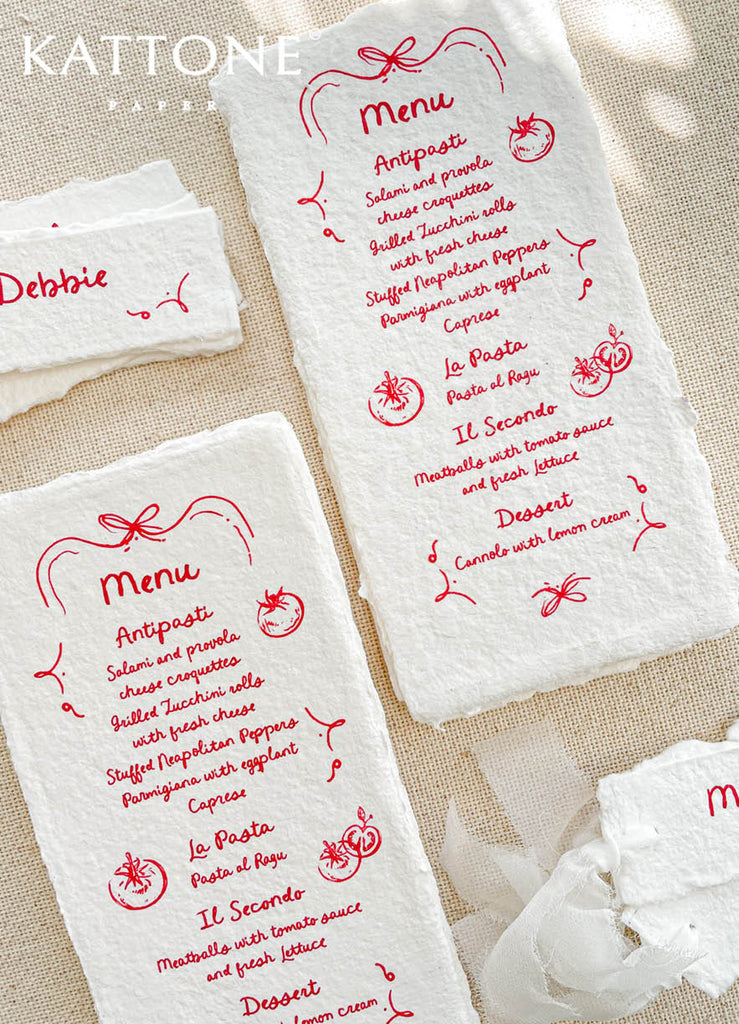 KATTONE
PAPER
Menu
Antipasti
Salami and provola
cheese croquettes
Grilled Zucchini rolls
with fresh cheese
Stuffed Neapolitan Peppers
Parmigiana with eggplant
Caprese
La Pasta
Pasta al Ragu
Il Secondo
Meatballs with tomato sauce
and fresh Lettuce
Dessert
Cannolo with lemon cream
Debbie
Menu
Antipasti
Salami and provola
cheese croquettes
Grilled Zucchini rolls
with fresh cheese
Stuffed Neapolitan Peppers
Parmigiana with eggplant
Caprese
La Pasta
Pasta al Ragu
Il Secondo
Meatballs with tomato sauce
and fresh Lettuce
Dessert
Cannolo with lemon cream